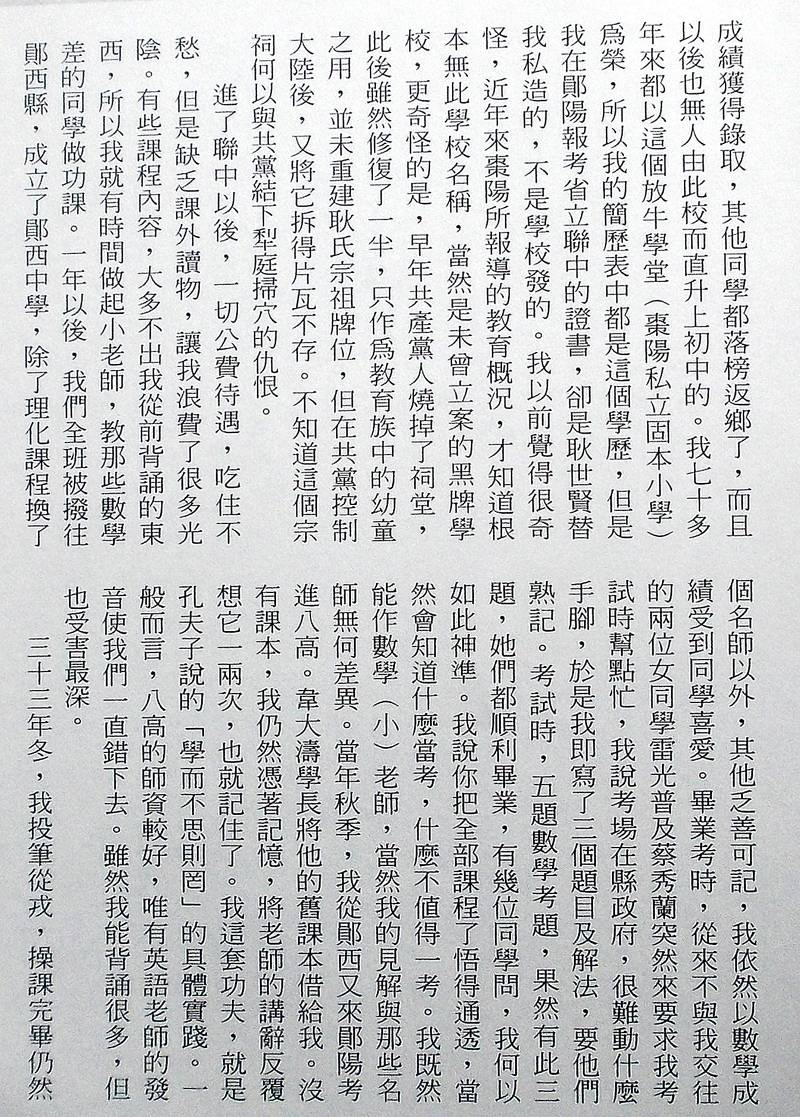 成績獲得錄取，其他同學都落榜返鄉了，而且
以後也無人由此校而直升上初中的。我七十多
年來都以這個放牛學堂（棗陽私立固本小學）
爲榮，所以我的簡歷表中都是這個學歷，但是
我在鄖陽報考省立聯中的證書，卻是耿世賢替
我私造的，不是學校發的。我以前覺得很奇
怪，近年來棗陽所報導的教育概況，才知道根
本無此學校名稱，當然是未曾立案的黑牌學
校，更奇怪的是，早年共產黨人燒掉了祠堂，
此後雖然修復了一半，只作爲教育族中的幼童
之用，並未重建耿氏宗祖牌位，但在共黨控制
大陸後，又將它拆得片瓦不存。不知道這個宗
祠何以與共黨結下犁庭掃穴的仇恨。
進了聯中以後，一切公費待遇，吃住不
愁，但是缺乏課外讀物，讓我浪費了很多光
陰。有些課程內容，大多不出我從前背誦的東
西，所以我就有時間做起小老師，教那些數學
差的同學做功課。一年以後，我們全班被撥往
鄖西縣，成立了鄖西中學，除了理化課程換了
個名師以外，其他乏善可記，我依然以數學成
績受到同學喜愛。畢業考時，從來不與我交往
的兩位女同學雷光普及蔡秀蘭突然來要求我考
試時幫點忙，我說考場在縣政府，很難動什麼
手腳，於是我即寫了三個題目及解法，要他們
熟記。考試時，五題數學考題，果然有此三
題，她們都順利畢業，有幾位同學問，我何以
如此神準。我說你把全部課程了悟得通透，當
然會知道什麼當考，什麼不值得一考。我既然
能作數學（小）老師，當然我的見解與那些名
師無何差異。當年秋季，我從鄖西又來鄖陽考
進八高。韋大濤學長將他的舊課本借給我。沒
有課本，我仍然憑著記憶，將老師的講辭反覆
想它一兩次，也就記住了。我這套功夫，就是
孔夫子說的「學而不思則罔」的具體實踐。一
般而言，八高的師資較好，唯有英語老師的發
音使我們一直錯下去。雖然我能背誦很多，但
也受害最深。
三十三年冬，我投筆從戎，操課完畢仍然